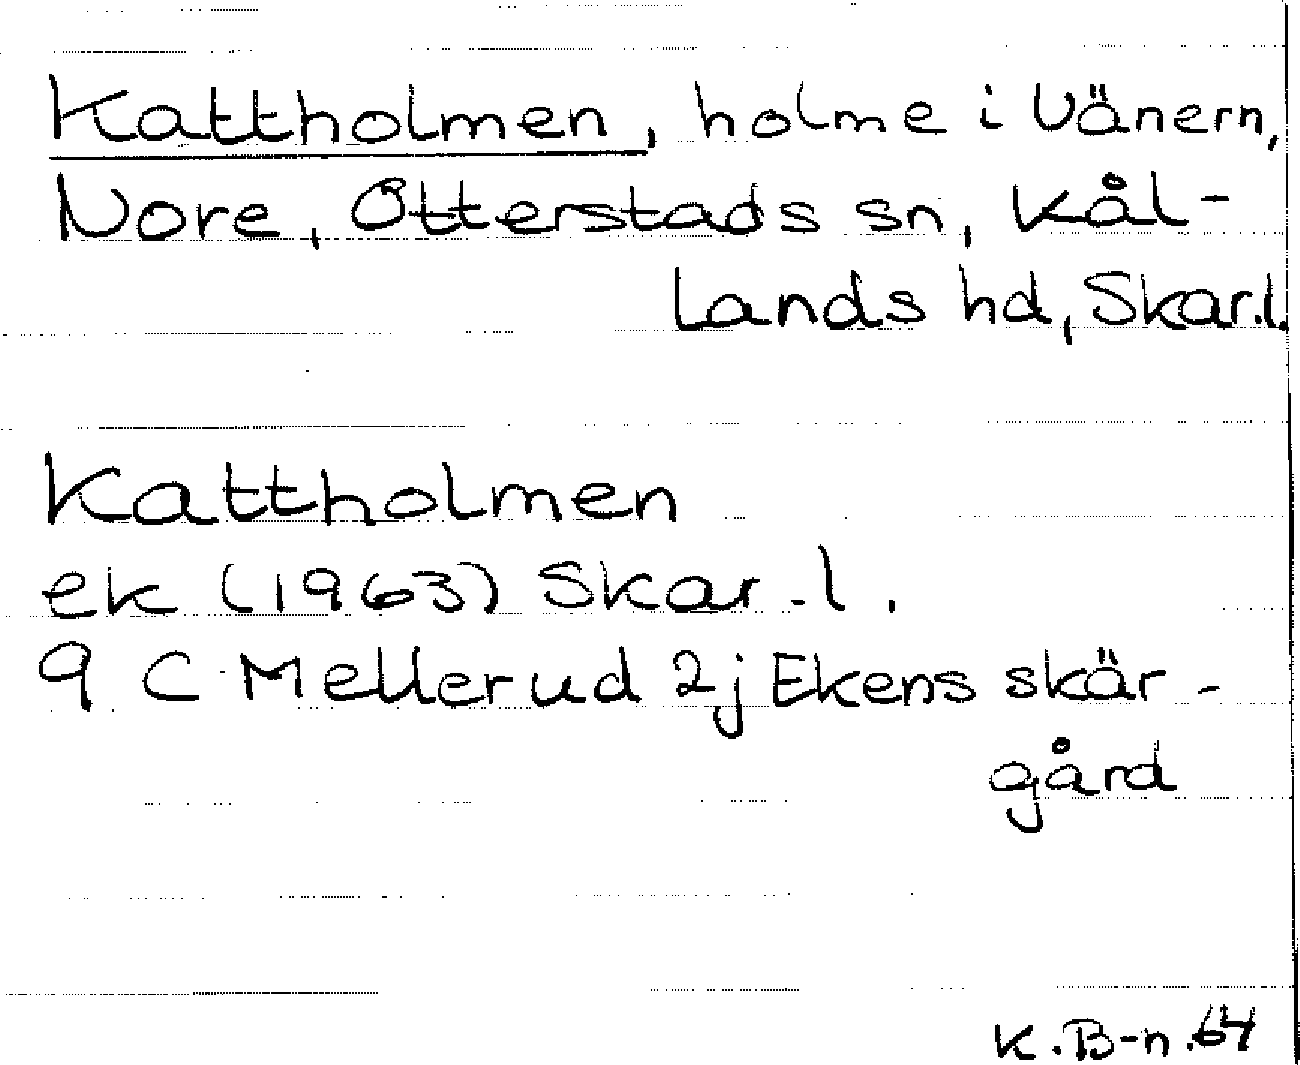 Kattholmen, holme i Vänern,
Nore, Otterstads sn, Kål-
lands hd, Skar.l.
Kattholmen
ek (1963) Skar.l.
9 C Mellerud 2j Ekens skär-
gård
K.B-n.64